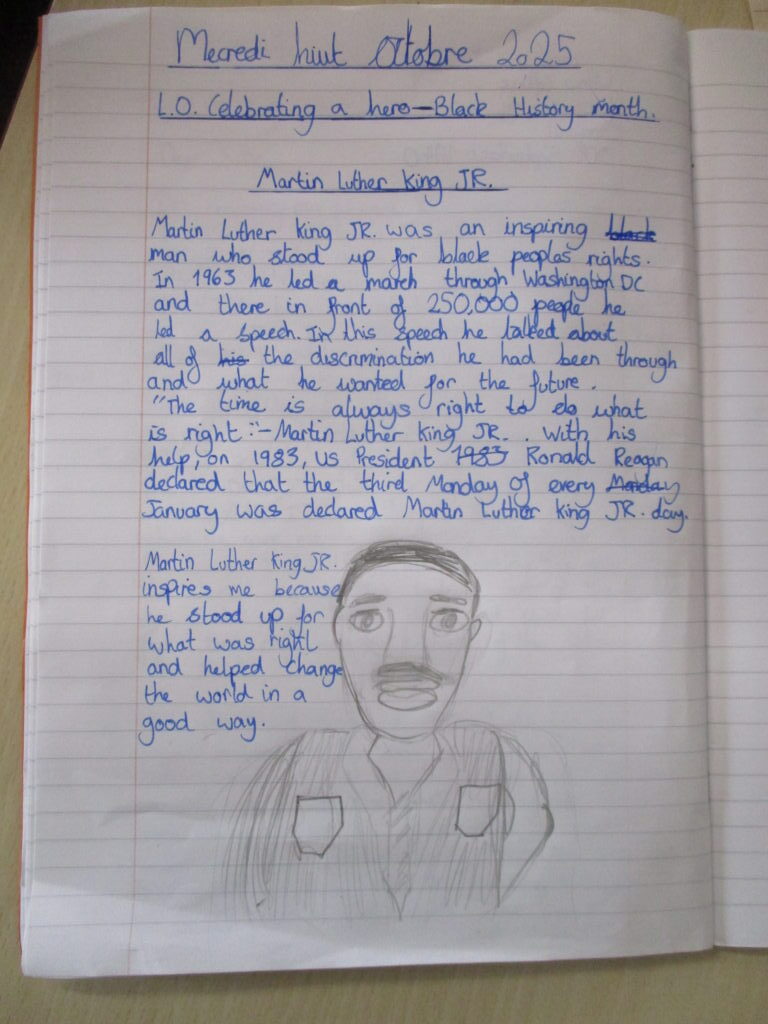 Mecredi huit Octobre 2025
L.O. Celebrating a hero—Black History month.
Martin Luther King JR.
Martin Luther King JR. was an inspiring black
man who stood up for black peoples rights.
In 1963 he led a march through Washington DC
and there in front of 250,000 people he
led a speech. In this speech he talked about
all of his the discrmination he had been through
and what he wanted for the future.
"The time is always right to do what
is right."- Martin Luther King JR. . With his
help, on 1983, US President 1983 Ronald Reagan
declared that the third Monday of every Monday
January was declared Martin Luther King JR. day.
Martin Luther King JR.
inspires me because
he stood up for
what was right
and helped change
the world in a
good way.